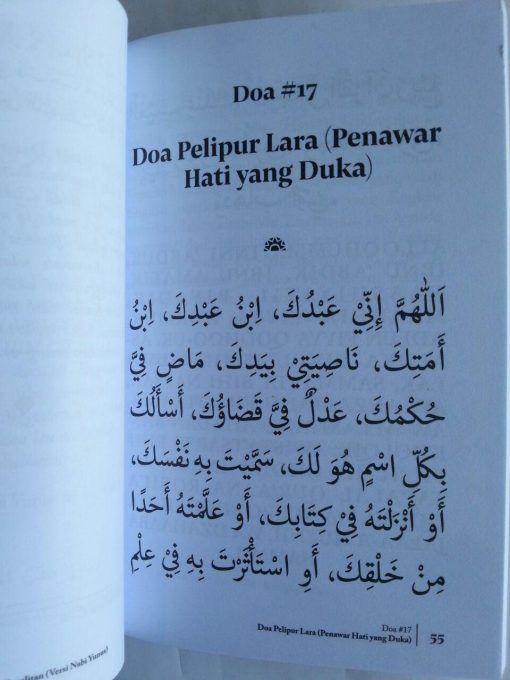 Doa #17
Doa Pelipur Lara (Penawar
Hati yang Duka)
اَللّٰهُمَّ إِنِّيْ عَبْدُكَ، اِبْنُ عَبْدِكَ، اِبْنُ
أَمَتِكَ، نَاصِيَتِيْ بِيَدِكَ، مَاضٍ فِيَّ
حُكْمُكَ، عَدْلٌ فِيَّ قَضَاؤُكَ، أَسْأَلُكَ
بِكُلِّ اسْمٍ هُوَ لَكَ، سَمَّيْتَ بِهِ نَفْسَكَ،
أَوْ أَنْزَلْتَهُ فِيْ كِتَابِكَ، أَوْ عَلَّمْتَهُ أَحَدًا
مِنْ خَلْقِكَ، أَوِ اسْتَأْثَرْتَ بِهِ فِيْ عِلْمِ
Doa #17
Doa Pelipur Lara (Penawar Hati yang Duka)
55
(Versi Nabi Yunus)